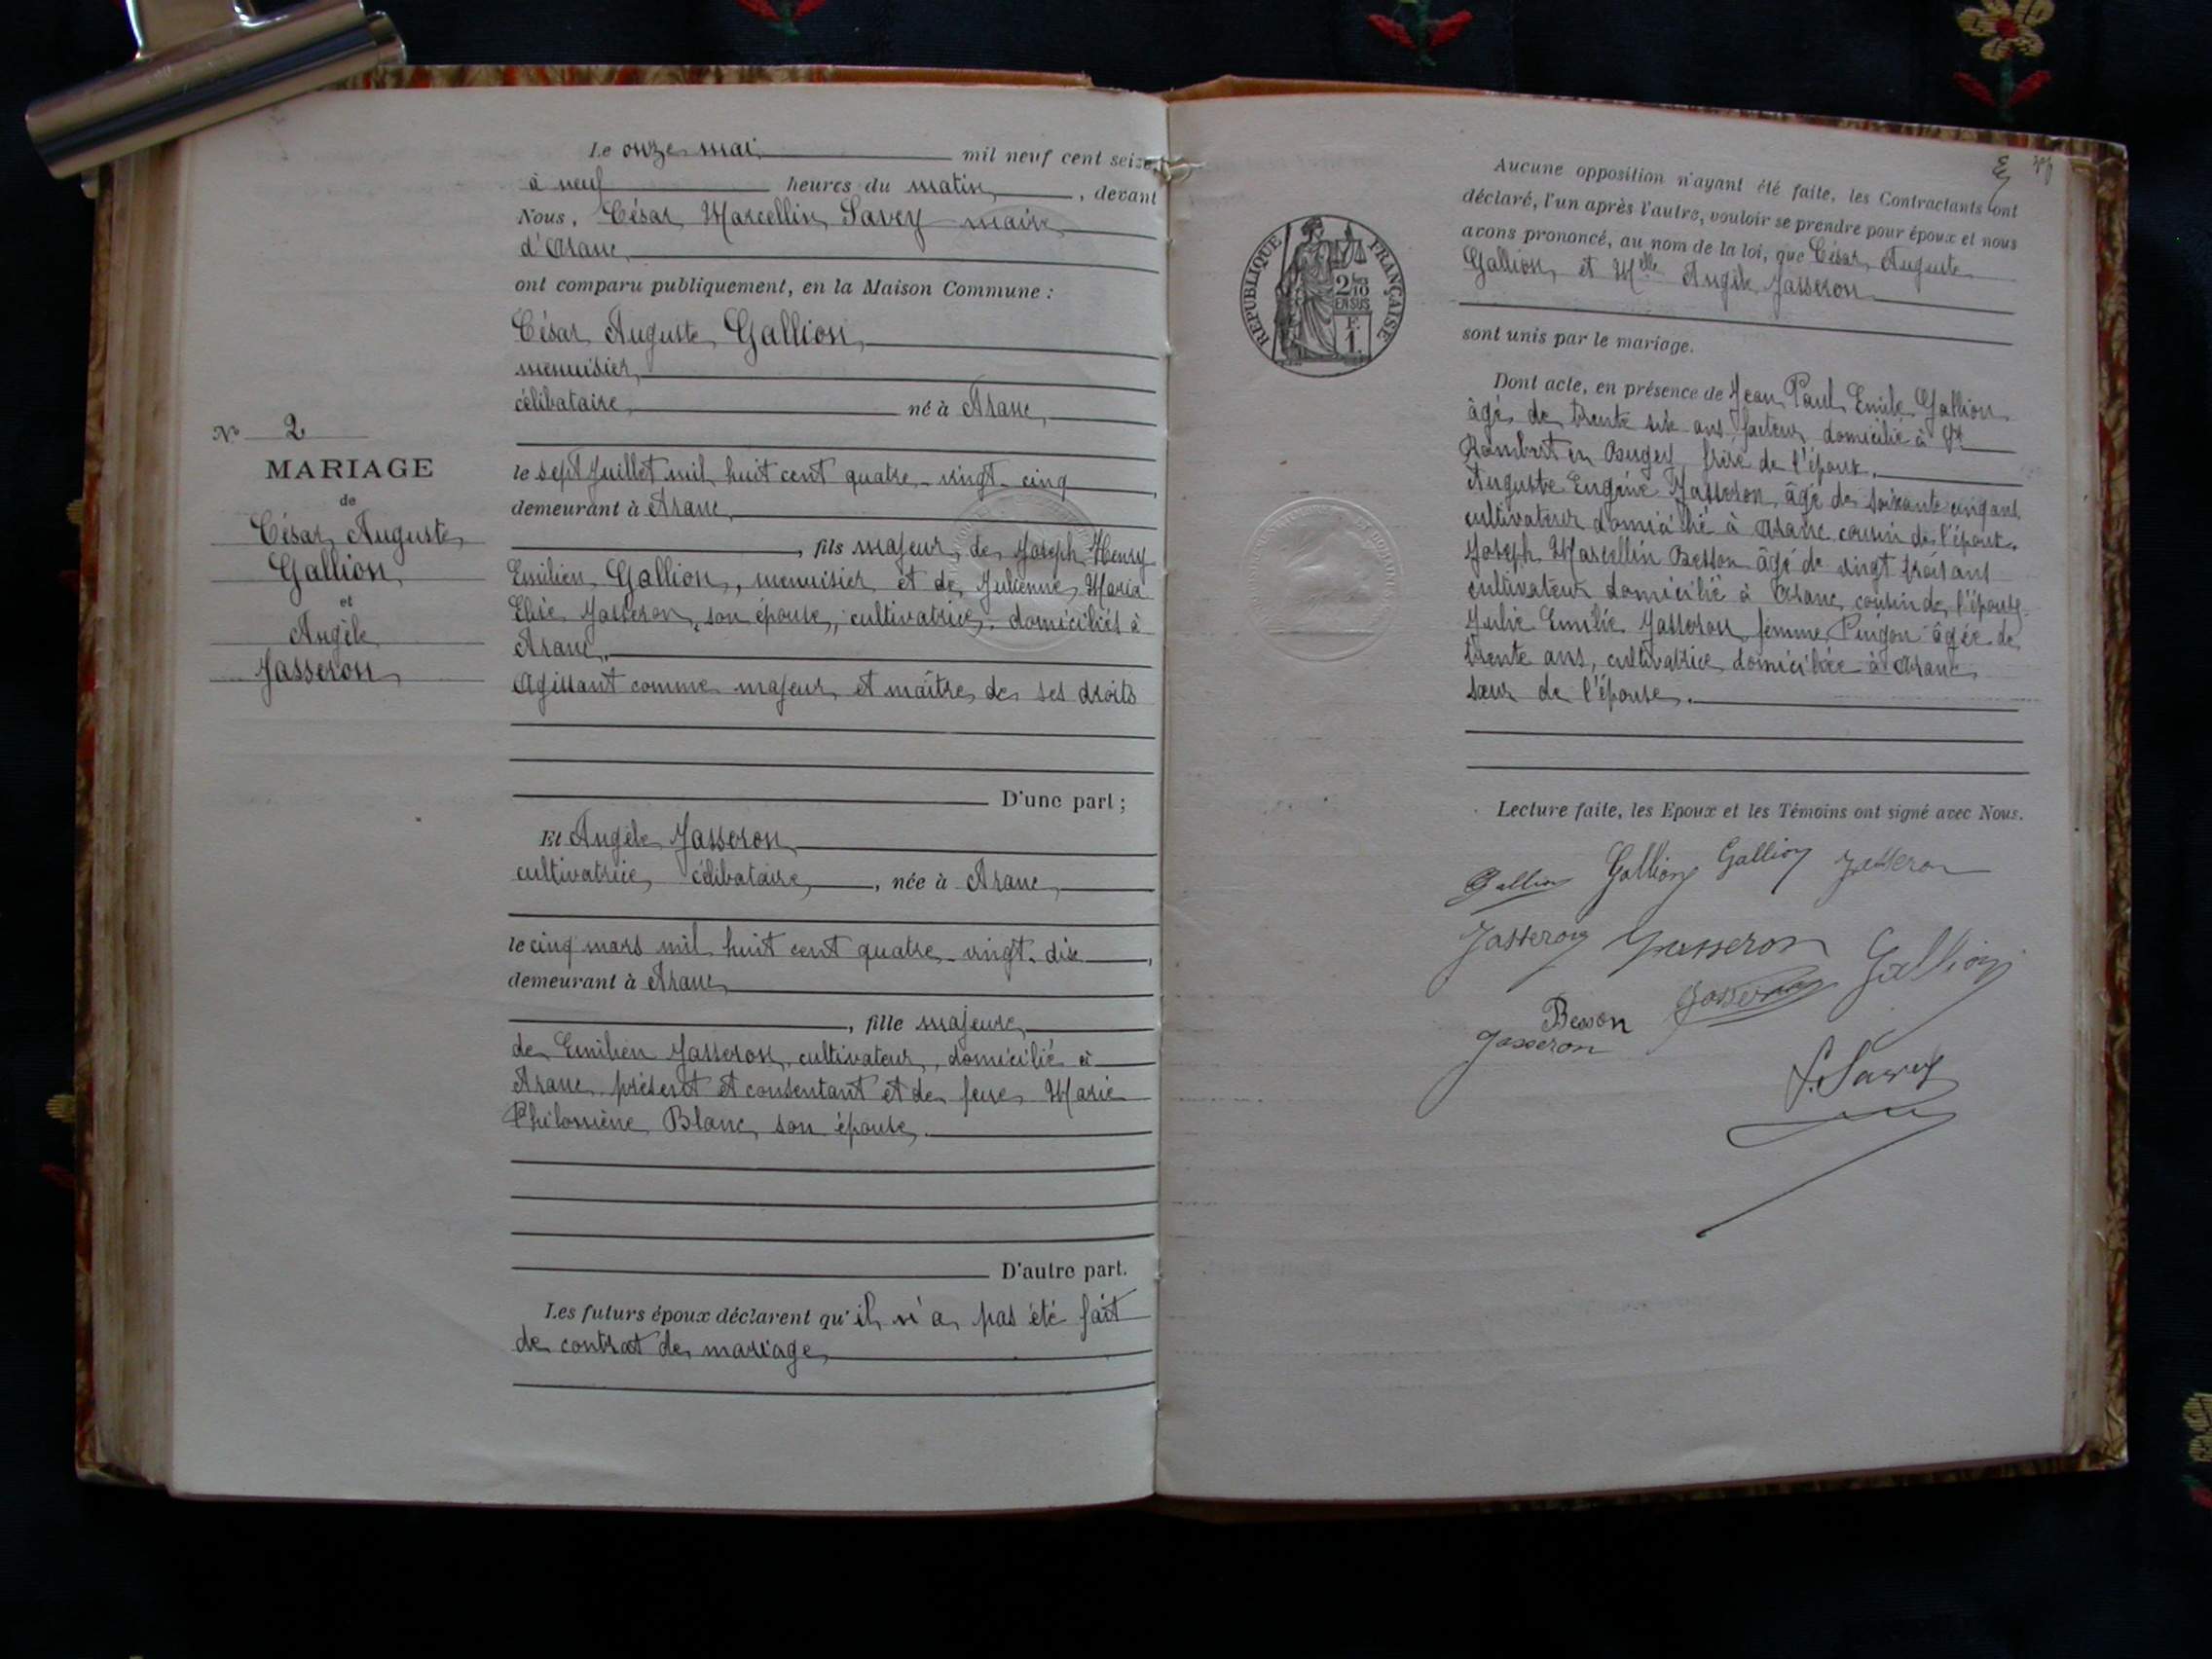 Le onze mai mil neuf cent seize,
à neuf heures du matin, devant
Nous, César Marcellin Savey maire
d'Aranc
ont comparu publiquement, en la Maison Commune :
César Auguste Gallion,
menuisier,
célibataire né à Aranc,
le sept Juillet mil huit cent quatre-vingt-cinq,
demeurant à Aranc,
, fils majeur de Joseph Henry
Emilien Gallion, menuisier et de Julienne Maria
Elise Jasseron, son épouse, cultivatrice, domiciliés à
Aranc,
Agissant comme majeur et maître de ses droits
D'une part ;
Et Angèle Jasseron
cultivatrice, célibataire, née à Aranc,
le cinq mars mil huit cent quatre-vingt-dix,
demeurant à Aranc
, fille majeure
de Emilien Jasseron, cultivateur, domicilié à
Aranc, présent et consentant et de feue Marie
Philomène Blanc, son épouse.
D'autre part.
Les futurs époux déclarent qu'il n'a pas été fait
de contrat de mariage
No 2
MARIAGE
de
César Auguste
Gallion
et
Angèle
Jasseron
RÉPUBLIQUE FRANÇAISE
2/10
EN SUS
F.
1.
Aucune opposition n'ayant été faite, les Contractants ont
déclaré, l'un après l'autre, vouloir se prendre pour époux et nous
avons prononcé, au nom de la loi, que César Auguste
Gallion et Melle Angèle Jasseron
sont unis par le mariage.
Dont acte, en présence de Jean Paul Emile Gallion
âgé de trente six ans, facteur, domicilié à St
Rambert en Bugey, frère de l'époux.
Auguste Eugène Jasseron, âgé de soixante cinq ans,
cultivateur domicilié à Aranc, cousin de l'époux.
Joseph Marcellin Besson âgé de vingt trois ans
cultivateur domicilié à Aranc, cousin de l'épouse.
Julie Emilie Jasseron, femme Pingon âgée de
trente ans, cultivatrice domiciliée à Aranc,
sœur de l'épouse.
Lecture faite, les Epoux et les Témoins ont signé avec Nous.
Gallion Gallion Gallion Jasseron
Jasseron Jasseron Gallion
Besson Jasseron
Jasseron
S. Savey